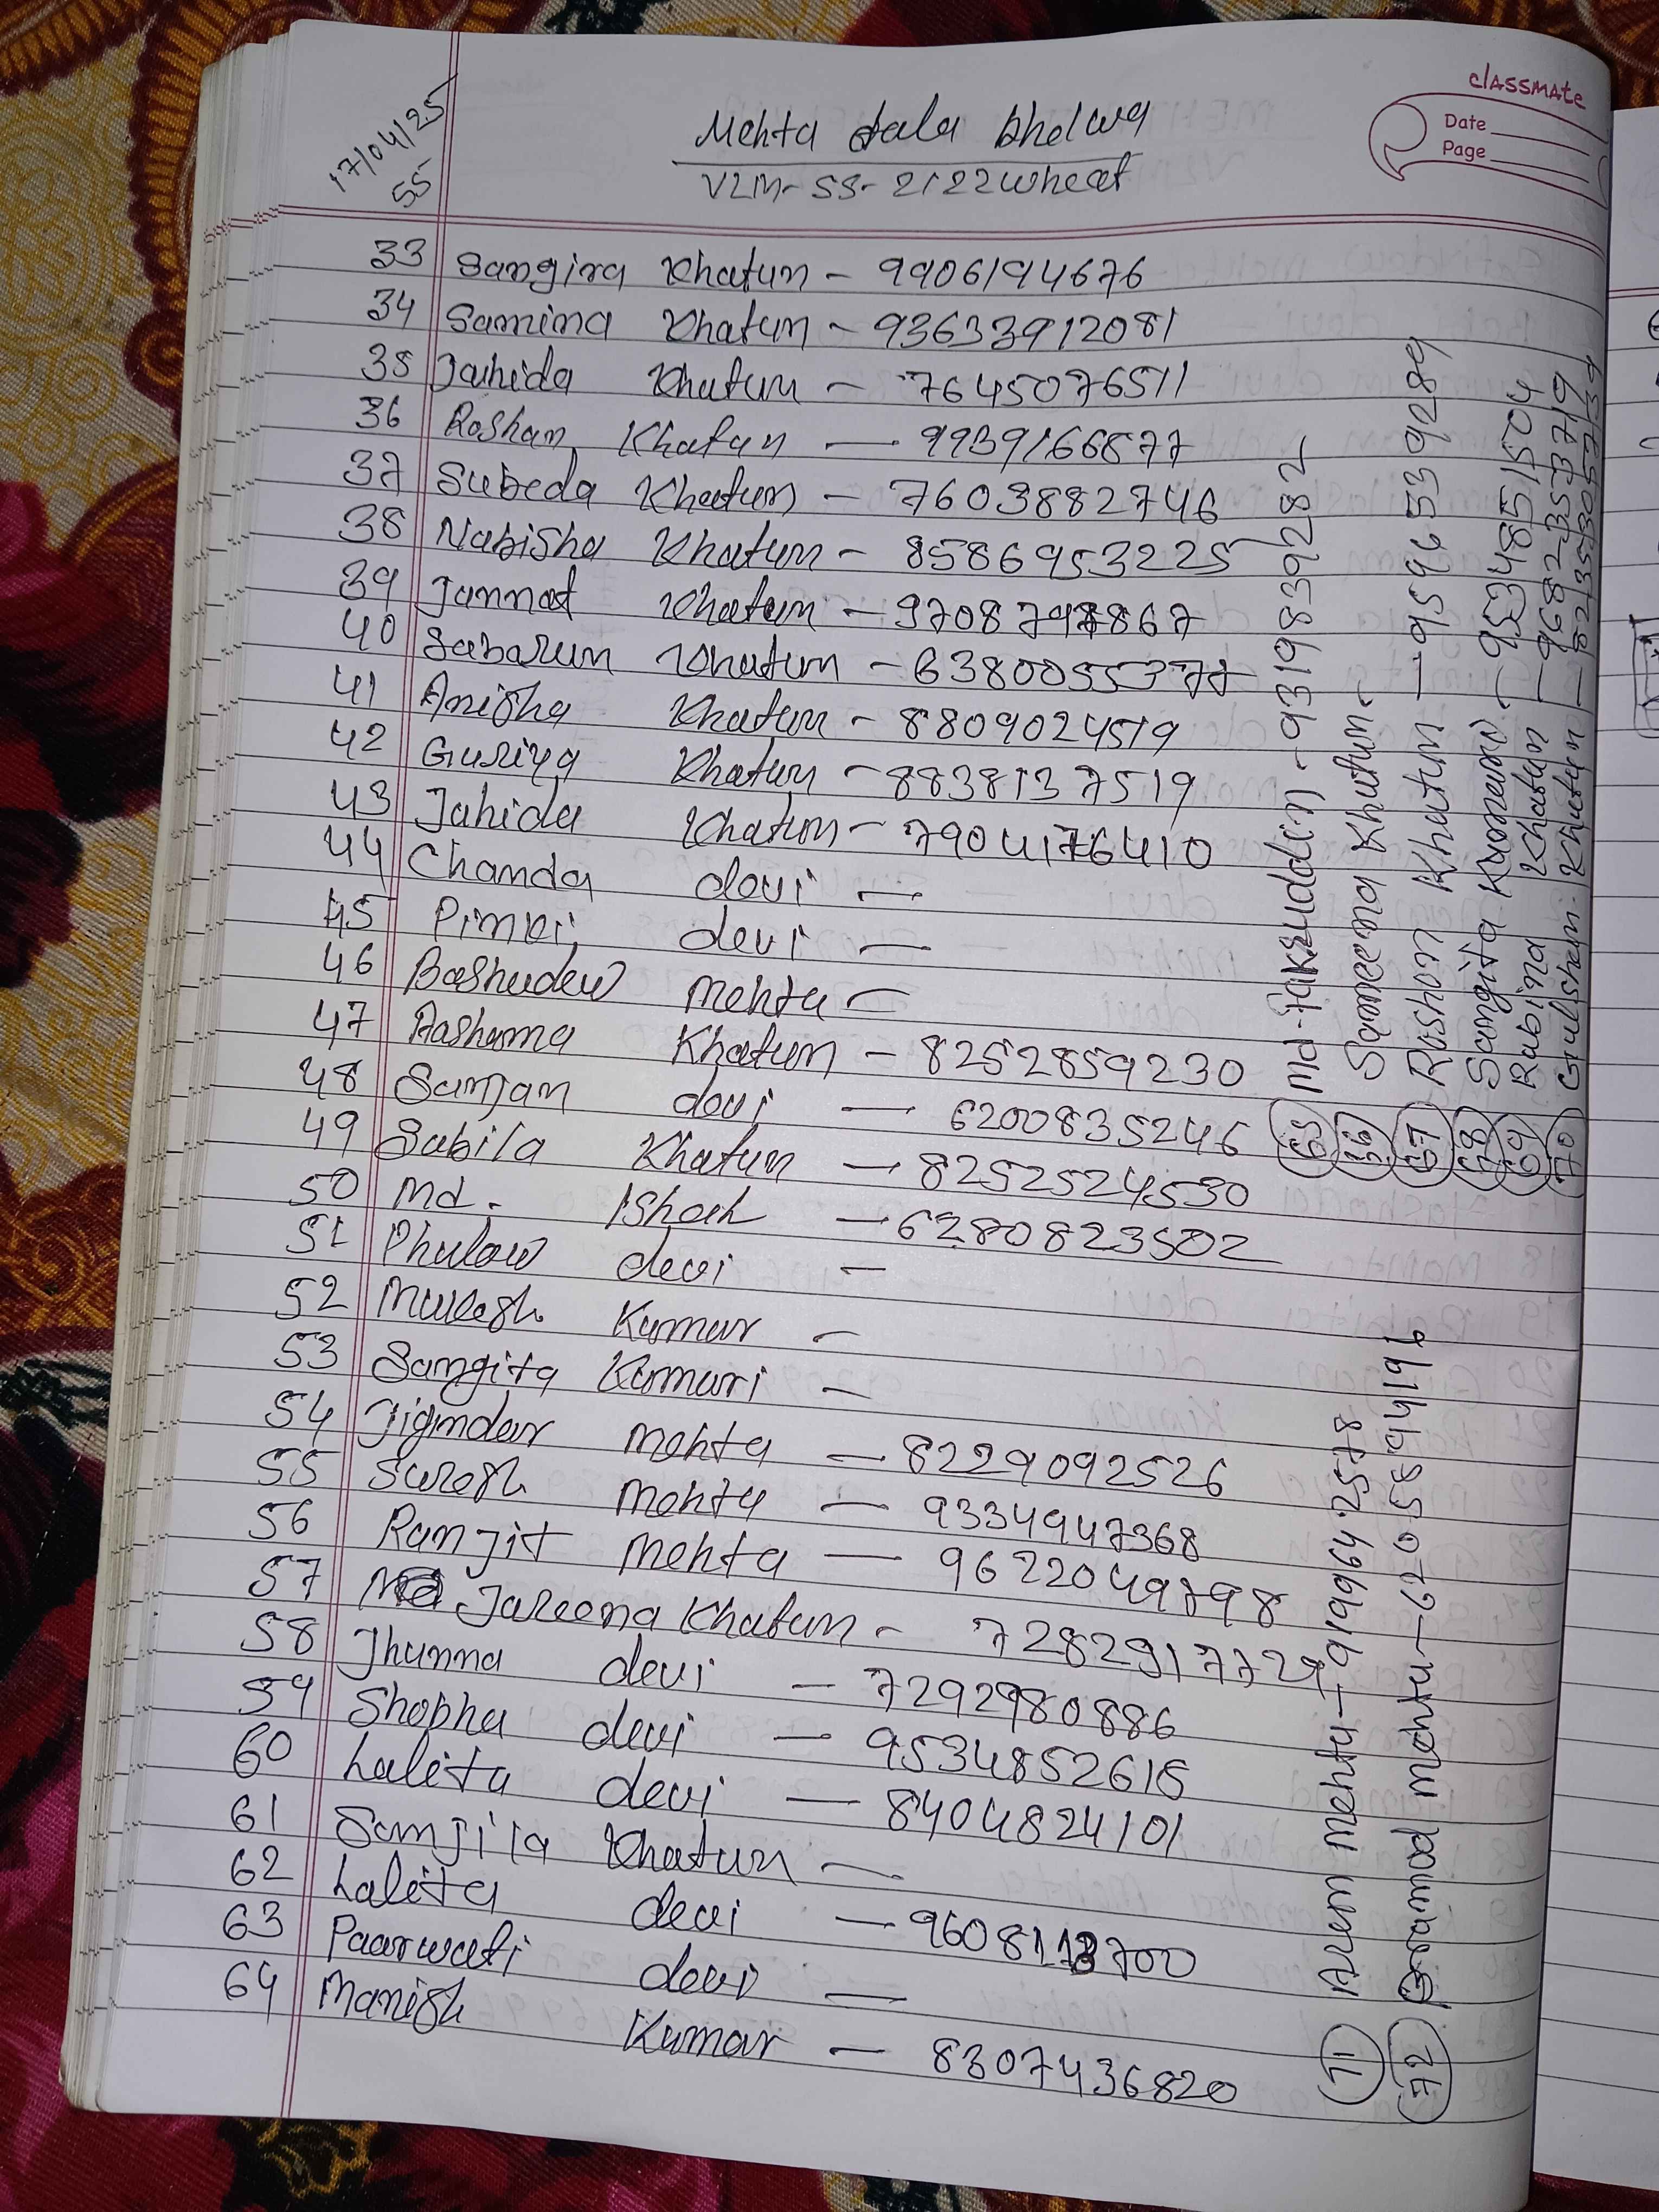 classmate
Date
Page
17/04/25
55
Mehta tala bhelwa
VLM-SS-2122 wheat
33 Sangira Khatun - 9906194676
34 Samina Khatun - 93633912081
35 Jahida Khatun - 7645076511
36 Roshan Khatun - 9939166877
37 Subeda Khatun - 7603882746
38 Nabisha Khatun - 8586953225
39 Jannat Khatun
40 Sabarun Khatun - 6380055377
41 Anisha Khatun - 8809024519
42 Guriya Khatun - 8838137519
43 Jahida Khatun - 7904176410
44 Chanda devi -
45 Pinki devi -
46 Bashudew Mehta -
47 Aashama Khatun - 8252859230
48 Sanjam devi - 6200835246
49 Sabila Khatun - 8252524530
50 Md. Ishak - 6280823502
51 Phulow devi -
52 Mukesh Kumar -
53 Sangita Kumari -
54 Jigindar Mehta - 8229092526
55 Suresh Mehta - 9334947368
56 Ranjit Mehta - 9622049798
57 Jareena Khatun - 7282917729
58 Jhunna devi - 7292980886
59 Shopha devi - 9534852615
60 Lalita devi - 8404824101
61 Sanjila Khatun -
62 Lalita devi - 9608113700
63 Paarwati devi -
64 Manish Kumar - 8307436820
65 Md. Fakruddin - 9319839282
66 Sameena Khutun -
67 Roshan Khutun - 9596539289
68 Sangita Kumari - 9534851504
69 Rabina Khatun - 9682353719
70 Gulshan Khutun - 8235305739
71 Arun Mehtu - 9199642578
72 Pramod mehtu - 6205894196